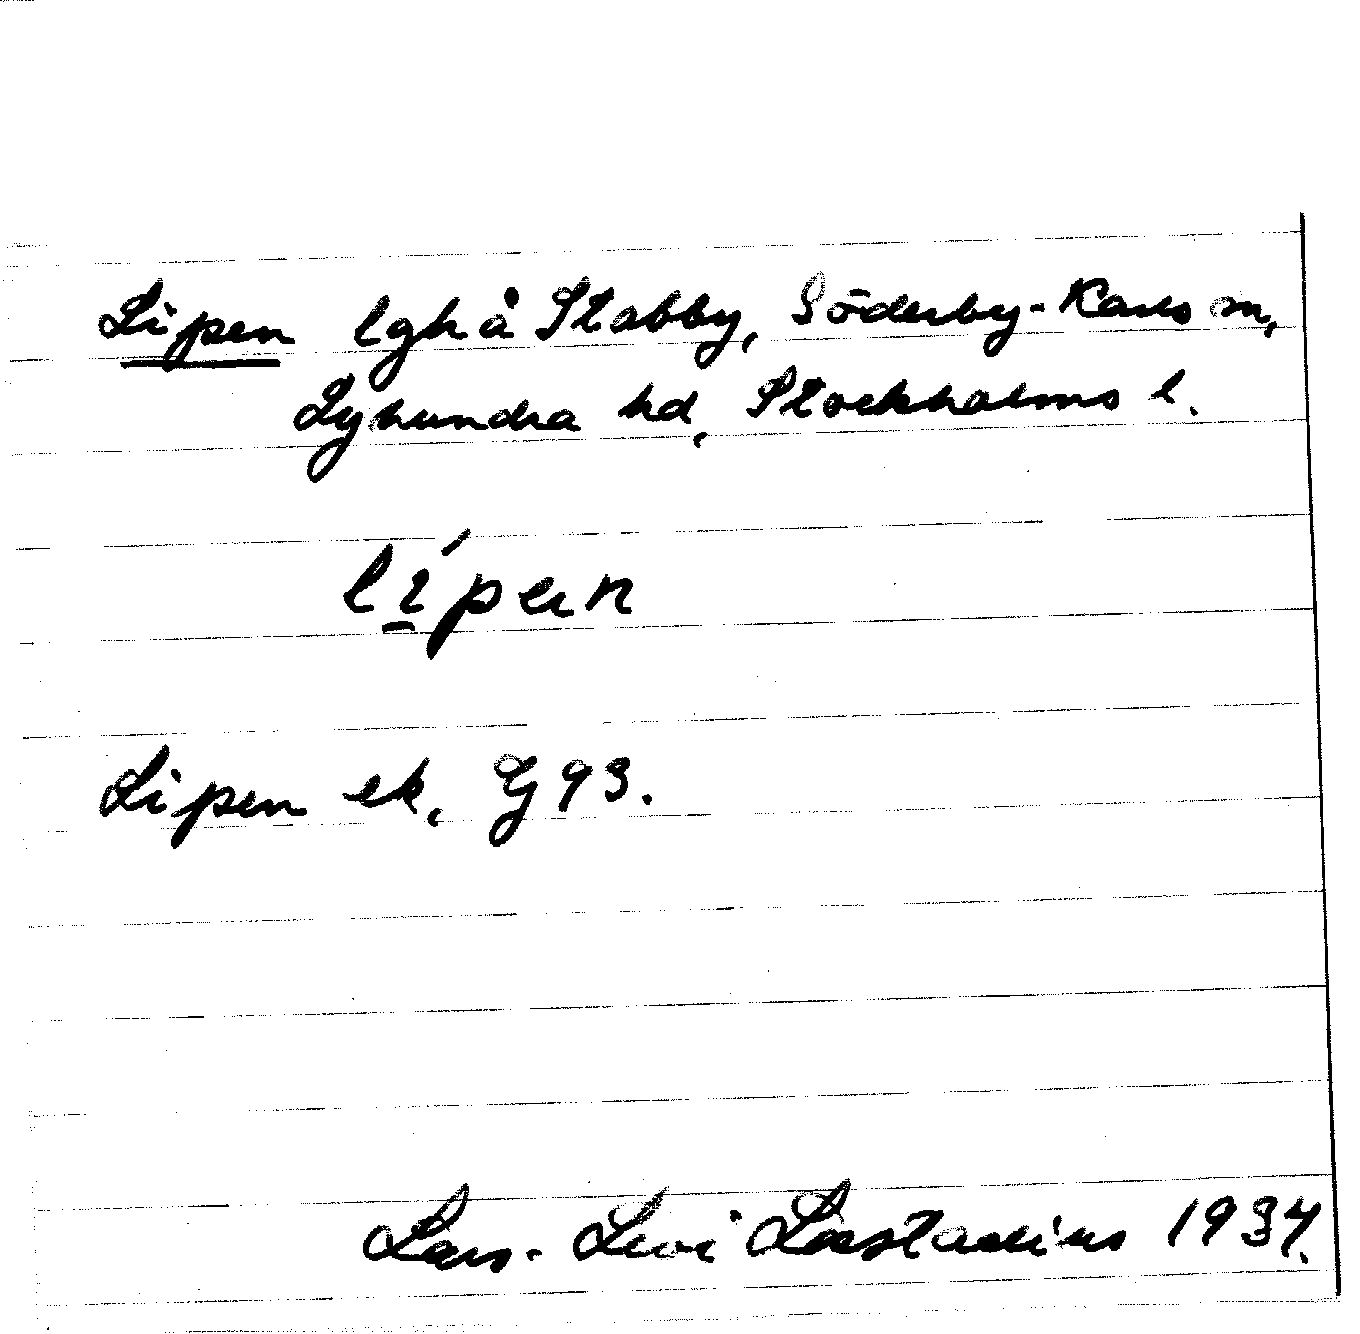 Lipen lgh å Stabby, Söderby-Karls sn,
Lyhundra hd, Stockholms l.
lípen
Lipen ek. G 93.
Lars-Levi Læstadius 1934.